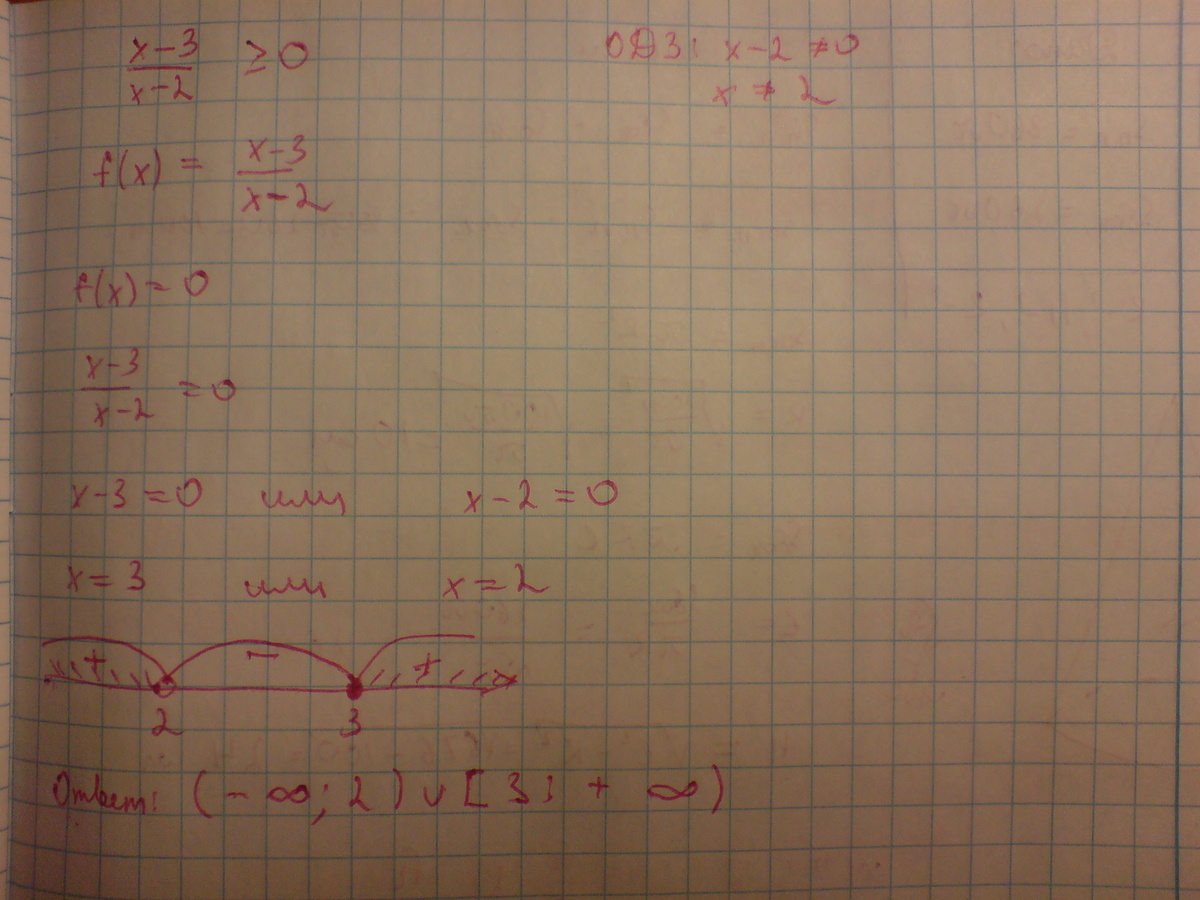 x-3
x-2 ≥ 0
ОДЗ: x-2 ≠ 0
x ≠ 2
f(x) = x-3
x-2
f(x) = 0
x-3
x-2 = 0
x-3=0 или x-2=0
x=3 или x=2
+ - +
2 3
Ответ: (-∞; 2) ∪ [3; +∞)